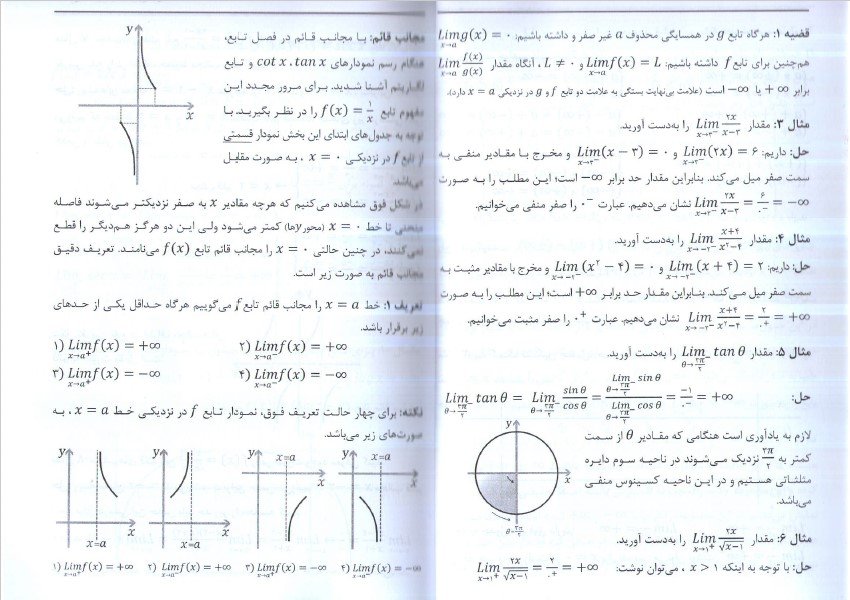 قضیه ۱: هرگاه تابع g در همسایگی محذوف a غیر صفر و داشته باشیم: Lim g(x) = ۰
x→a
هم‌چنین برای تابع f داشته باشیم: Lim f(x) = L و L ≠ ۰ ، آنگاه مقدار Lim f(x)/g(x)
x→a x→a
برابر +∞ یا −∞ است (علامت بی‌نهایت بستگی به علامت دو تابع f و g در نزدیکی x = a دارد).
مثال ۳: مقدار Lim ۲x/(x−۳) را به‌دست آورید.
x→۳⁻
حل: داریم: Lim(۲x) = ۶ و Lim(x − ۳) = ۰ و مخرج با مقادیر منفی به
x→۳⁻ x→۳⁻
سمت صفر میل می‌کند. بنابراین مقدار حد برابر −∞ است؛ این مطلب را به صورت
Lim ۲x/(x−۳) = ۶/۰⁻ = −∞ نشان می‌دهیم. عبارت ۰⁻ را صفر منفی می‌خوانیم.
x→۳⁻
مثال ۴: مقدار Lim (x+۴)/(x²−۴) را به‌دست آورید.
x→−۲⁻
حل: داریم: Lim(x + ۴) = ۲ و Lim(x² − ۴) = ۰ و مخرج با مقادیر مثبت به
x→−۲⁻ x→−۲⁻
سمت صفر میل می‌کند. بنابراین مقدار حد برابر +∞ است؛ این مطلب را به صورت
Lim (x+۴)/(x²−۴) = ۲/۰⁺ = +∞ نشان می‌دهیم. عبارت ۰⁺ را صفر مثبت می‌خوانیم.
x→−۲⁻
مثال ۵: مقدار Lim tan θ را به‌دست آورید.
θ→۳π/۲⁻
حل: Lim tan θ = Lim sin θ/cos θ = Lim sin θ / Lim cos θ = −۱/۰⁻ = +∞
θ→۳π/۲⁻
لازم به یادآوری است هنگامی که مقادیر θ از سمت
کمتر به ۳π/۲ نزدیک می‌شوند در ناحیه سوم دایره
مثلثاتی هستیم و در این ناحیه کسینوس منفی
می‌باشد.
y
x
θ→۳π/۲
مثال ۶: مقدار Lim ۲x/√(x−۱) را به‌دست آورید.
x→۱⁺
حل: با توجه به اینکه x > ۱ ، می‌توان نوشت: Lim ۲x/√(x−۱) = ۲/۰⁺ = +∞
x→۱⁺
مجانب قائم: با مجانب قائم در فصل تابع،
هنگام رسم نمودارهای tan x ، cot x و تابع
لگاریتم آشنا شدید. برای مرور مجدد این
مفهوم تابع f(x) = ۱/x را در نظر بگیرید. با
توجه به جدول‌های ابتدای این بخش نمودار قسمتی
از تابع f در نزدیکی x = ۰ ، به صورت مقابل
می‌باشد.
y
x
در شکل فوق مشاهده می‌کنیم که هرچه مقادیر x به صفر نزدیکتر می‌شوند فاصله
منحنی تا خط x = ۰ (محور yها) کمتر می‌شود ولی این دو هرگز هم‌دیگر را قطع
نمی‌کنند، در چنین حالتی x = ۰ را مجانب قائم تابع f(x) می‌نامند. تعریف دقیق
مجانب قائم به صورت زیر است.
تعریف ۱: خط x = a را مجانب قائم تابع f می‌گوییم هرگاه حداقل یکی از حدهای
زیر برقرار باشد.
۱) Lim f(x) = +∞ ۲) Lim f(x) = +∞
x→a⁺ x→a⁻
۳) Lim f(x) = −∞ ۴) Lim f(x) = −∞
x→a⁺ x→a⁻
نکته: برای چهار حالت تعریف فوق، نمودار تابع f در نزدیکی خط x = a ، به
صورت‌های زیر می‌باشد.
y y y x=a y x=a
x=a x x=a x x x
۱) Lim f(x) = +∞ ۲) Lim f(x) = +∞ ۳) Lim f(x) = −∞ ۴) Lim f(x) = −∞
x→a⁺ x→a⁻ x→a⁺ x→a⁻